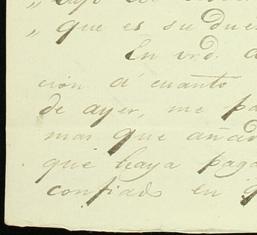 „ que es su due
En vrd. a
ción á cuanto
de ayer, me pa
mas que añad
que haya paga
confiado en q